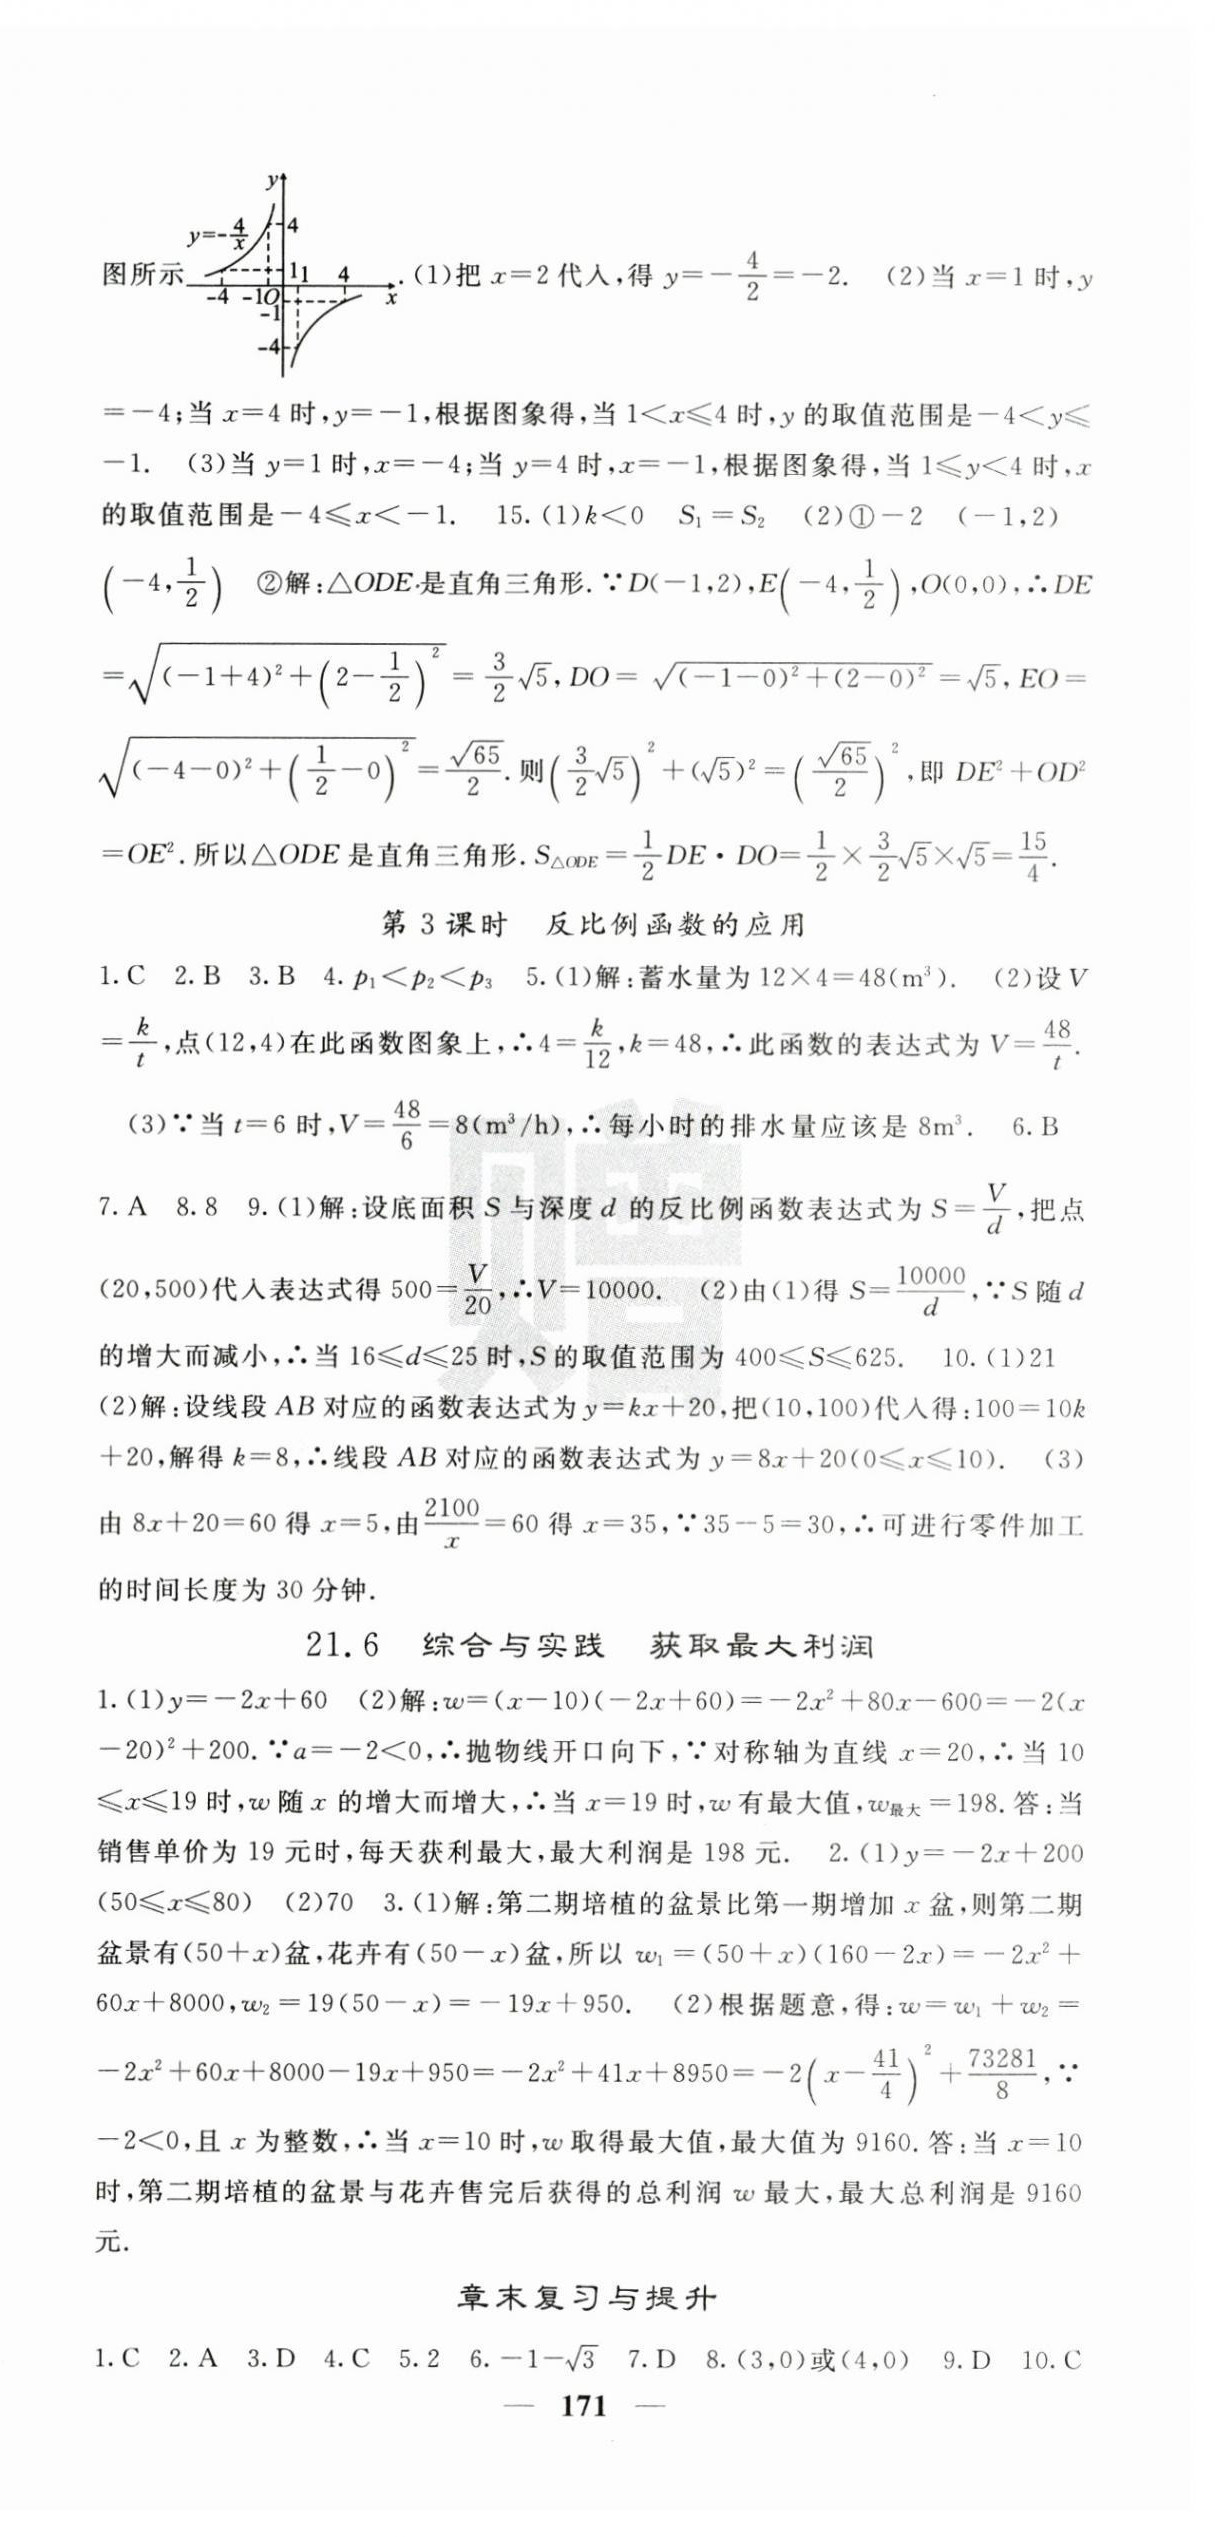 y
y=-4/x
4
图所示 -4 -1 O 1 1 4 x .(1)把 x=2 代入,得 y=-4/2=-2. (2)当 x=1 时,y
-1
-4
=-4;当 x=4 时,y=-1,根据图象得,当 1<x≤4 时,y 的取值范围是-4<y≤
-1. (3)当 y=1 时,x=-4;当 y=4 时,x=-1,根据图象得,当 1≤y<4 时,x
的取值范围是-4≤x<-1. 15.(1)k<0 S₁=S₂ (2)①-2 (-1,2)
(-4,1/2) ②解:△ODE是直角三角形.∵D(-1,2),E(-4,1/2),O(0,0),∴DE
=√((-1+4)²+(2-1/2)²)=3/2√5,DO=√((-1-0)²+(2-0)²)=√5,EO=
√((-4-0)²+(1/2-0)²)=√65/2.则(3/2√5)²+(√5)²=(√65/2)²,即 DE²+OD²
=OE².所以△ODE 是直角三角形.S△ODE=1/2DE·DO=1/2×3/2√5×√5=15/4.
第 3 课时 反比例函数的应用
1.C 2.B 3.B 4.p₁<p₂<p₃ 5.(1)解:蓄水量为 12×4=48(m³). (2)设 V
=k/t,点(12,4)在此函数图象上,∴4=k/12,k=48,∴此函数的表达式为 V=48/t.
(3)∵当 t=6 时,V=48/6=8(m³/h),∴每小时的排水量应该是 8m³. 6.B
7.A 8.8 9.(1)解:设底面积 S 与深度 d 的反比例函数表达式为 S=V/d,把点
(20,500)代入表达式得 500=V/20,∴V=10000. (2)由(1)得 S=10000/d,∵S 随 d
的增大而减小,∴当 16≤d≤25 时,S 的取值范围为 400≤S≤625. 10.(1)21
(2)解:设线段 AB 对应的函数表达式为 y=kx+20,把(10,100)代入得:100=10k
+20,解得 k=8,∴线段 AB 对应的函数表达式为 y=8x+20(0≤x≤10). (3)
由 8x+20=60 得 x=5,由2100/x=60 得 x=35,∵35-5=30,∴可进行零件加工
的时间长度为 30 分钟.
21.6 综合与实践 获取最大利润
1.(1)y=-2x+60 (2)解:w=(x-10)(-2x+60)=-2x²+80x-600=-2(x
-20)²+200.∵a=-2<0,∴抛物线开口向下,∵对称轴为直线 x=20,∴当 10
≤x≤19 时,w 随 x 的增大而增大,∴当 x=19 时,w 有最大值,w最大=198.答:当
销售单价为 19 元时,每天获利最大,最大利润是 198 元. 2.(1)y=-2x+200
(50≤x≤80) (2)70 3.(1)解:第二期培植的盆景比第一期增加 x 盆,则第二期
盆景有(50+x)盆,花卉有(50-x)盆,所以 w₁=(50+x)(160-2x)=-2x²+
60x+8000,w₂=19(50-x)=-19x+950. (2)根据题意,得:w=w₁+w₂=
-2x²+60x+8000-19x+950=-2x²+41x+8950=-2(x-41/4)²+73281/8,∵
-2<0,且 x 为整数,∴当 x=10 时,w 取得最大值,最大值为 9160.答:当 x=10
时,第二期培植的盆景与花卉售完后获得的总利润 w 最大,最大总利润是 9160
元.
章末复习与提升
1.C 2.A 3.D 4.C 5.2 6.-1-√3 7.D 8.(3,0)或(4,0) 9.D 10.C
— 171 —
赠